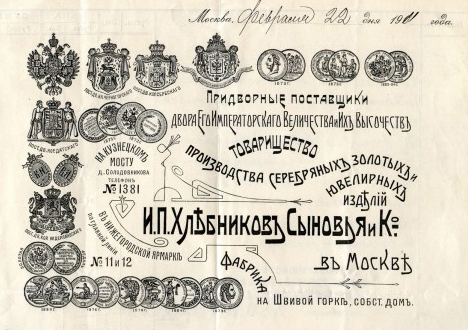 Москва. Февраля 22 дня 1901 года.
ПРИДВОРНЫЕ ПОСТАВЩИКИ
ДВОРА ЕГО ИМПЕРАТОРСКАГО ВЕЛИЧЕСТВА И ИХЪ ВЫСОЧЕСТВЪ
ТОВАРИЩЕСТВО
ПРОИЗВОДСТВА СЕРЕБРЯНЫХЪ ЗОЛОТЫХЪ И
ЮВЕЛИРНЫХЪ
ИЗДѢЛIЙ
И.П.ХЛѢБНИКОВЪ СЫНОВЬЯ И Ко.
ВЪ МОСКВѢ
ФАБРИКА
НА ШВИВОЙ ГОРКѢ, СОБСТ. ДОМЪ.
НА КУЗНЕЦКОМЪ
МОСТУ
Д. СОЛОДОВНИКОВА
ТЕЛЕФОНЪ
№ 1381
ВЪ НИЖЕГОРОДСКОЙ ЯРМАРКѢ
ПО ГЛАВНОЙ ЛИНIИ
№ 11 И 12